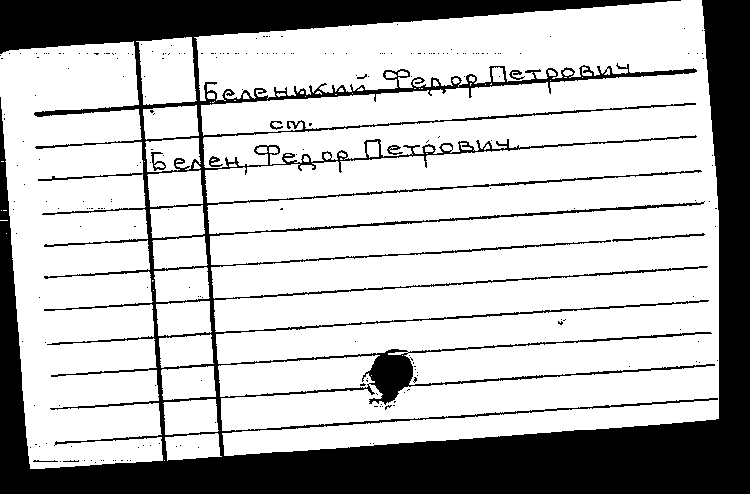 Беленький, Федор Петрович
ст.
Белен, Федор Петрович